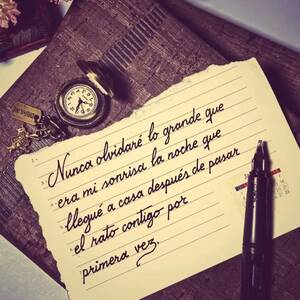 Nunca olvidaré lo grande que
era mi sonrisa la noche que
llegué a casa después de pasar
el rato contigo por
primera vez.